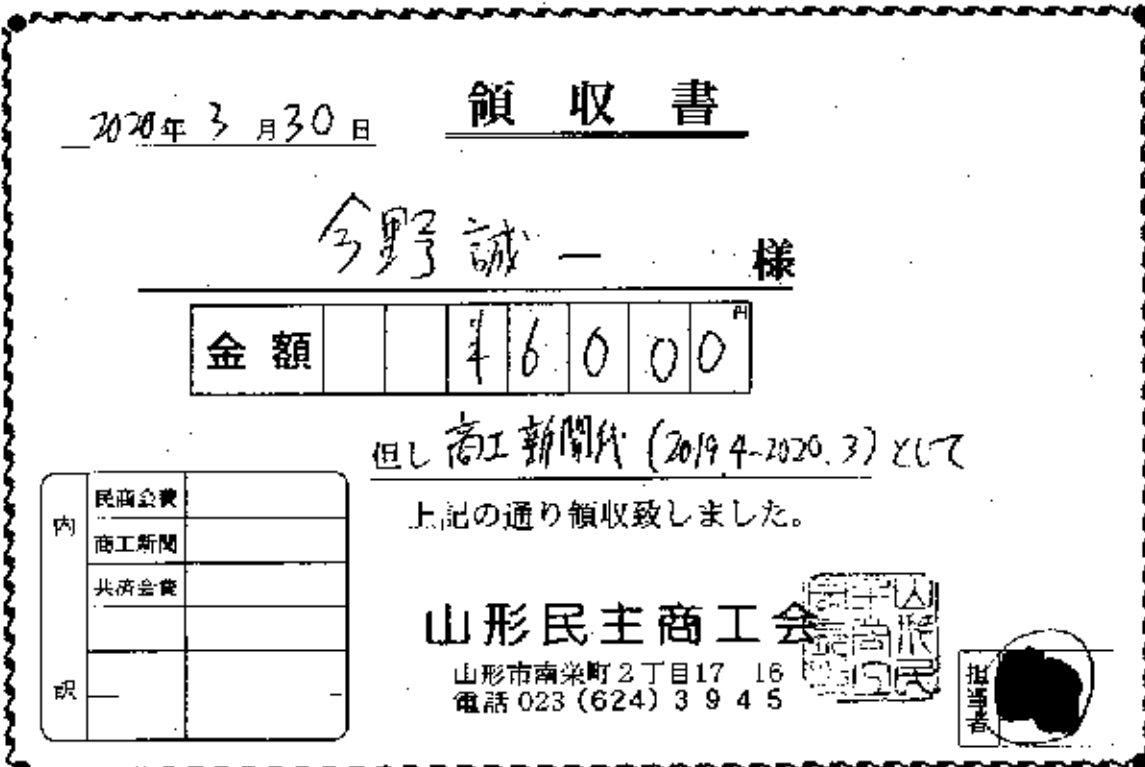 領収書
2020年3月30日
今野誠一 様
金額 ¥6000円
但し 商工新聞代 (2019.4-2020.3) として
上記の通り領収致しました。
内訳
民商会費
商工新聞
共済会費
山形民主商工会
山形市南栄町2丁目17 16
電話 023 (624) 3945
担当者